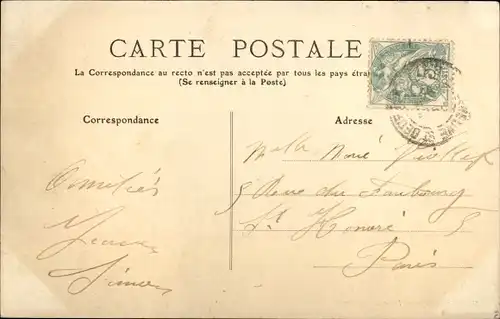 CARTE POSTALE
La Correspondance au recto n'est pas acceptée par tous les pays
(Se renseigner à la Poste)
Correspondance
Adresse
Amitiés
Melle
5 Rue du Faubourg
St Honoré 5
Paris